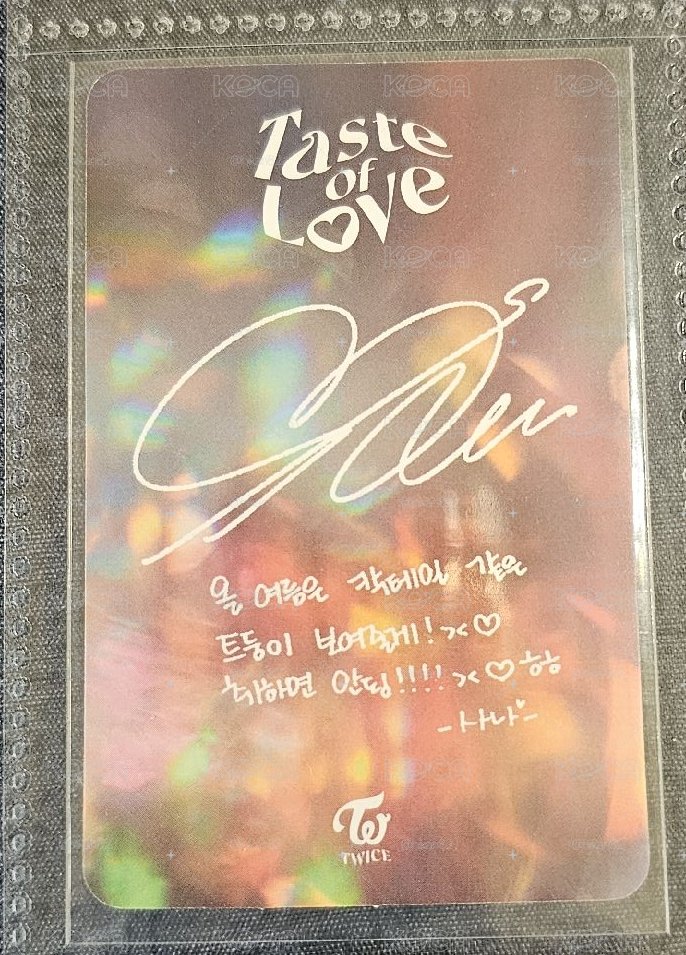 KOCA KOCA KOCA
Taste
of
Love
올 여름은 칵테일 같은
트둥이 보여줄게! >< ♡
취하면 안돼!!!! >< ♡ ㅎㅎ
- 사나 -
TWICE